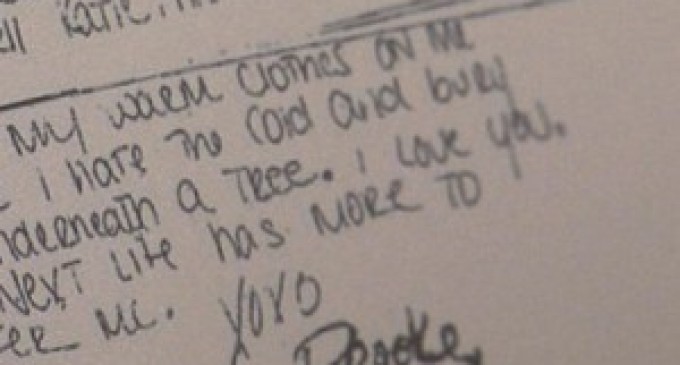 ell Katie,
My warm clothes on me
i hate the cold and bury
nderneath a Tree. i Love you.
Next Life has more to
fer Me. XOXO